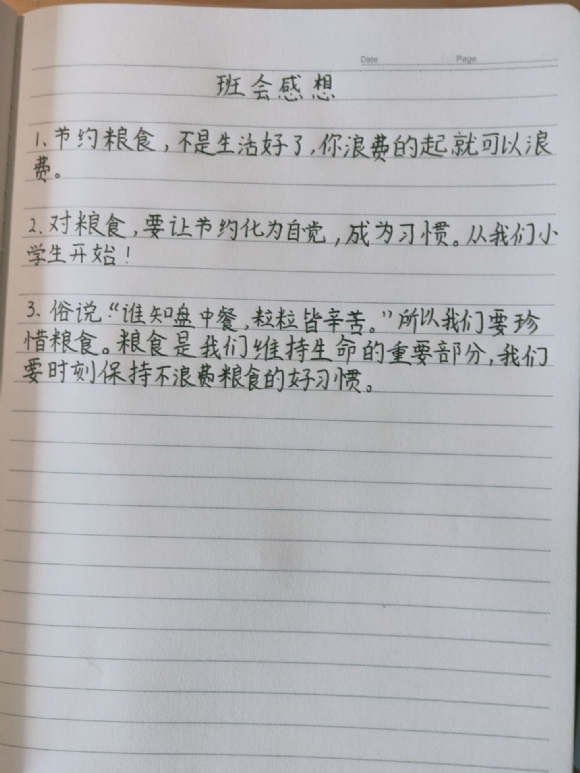 Date
Page
班会感想
1、节约粮食，不是生活好了，你浪费的起就可以浪
费。
2. 对粮食，要让节约化为自觉，成为习惯。从我们小
学生开始！
3、俗说“谁知盘中餐，粒粒皆辛苦。”所以我们要珍
惜粮食。粮食是我们维持生命的重要部分，我们
要时刻保持不浪费粮食的好习惯。